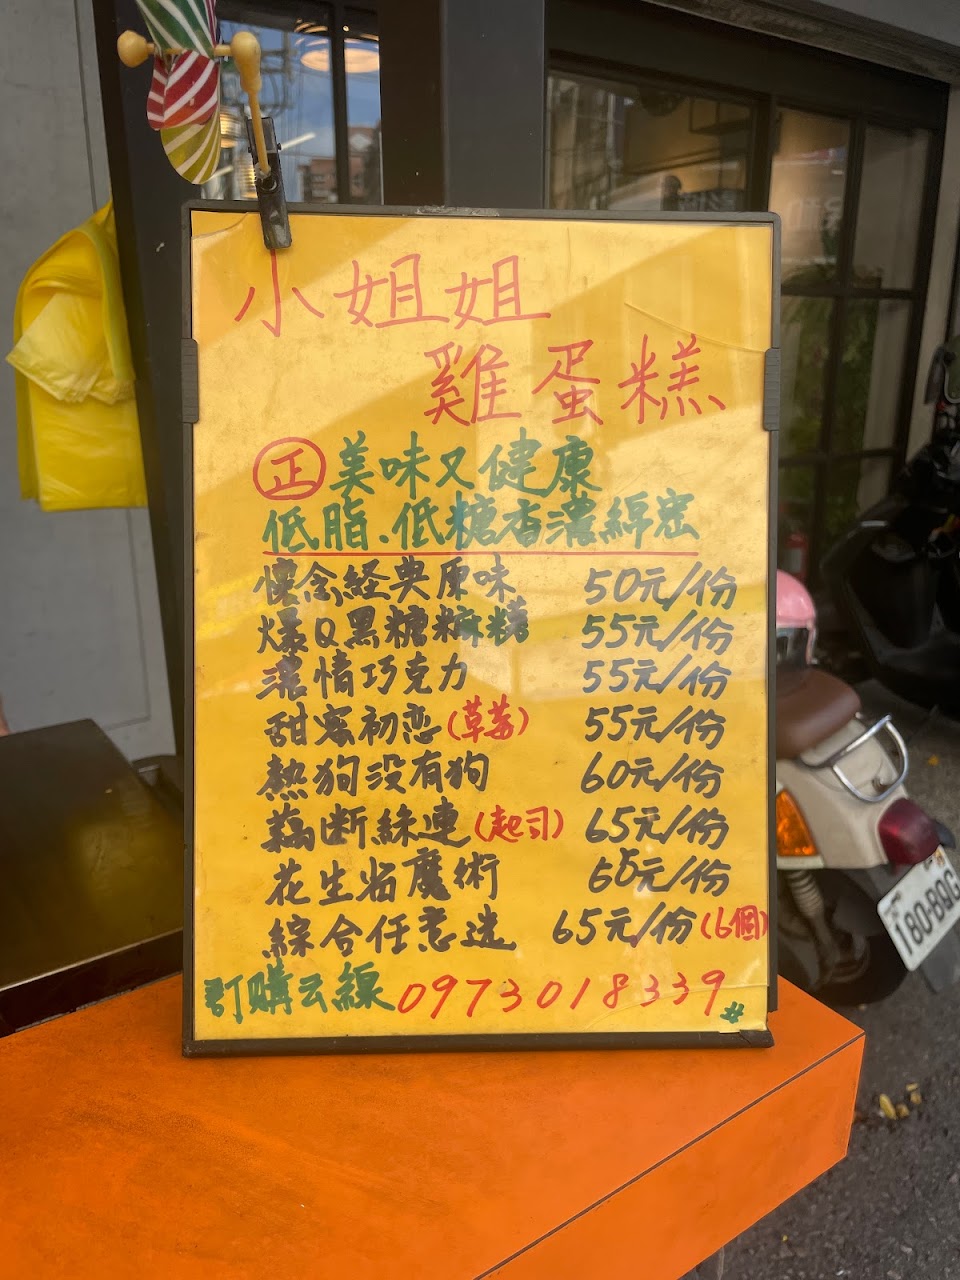 小姐姐
雞蛋糕
正 美味又健康
低脂.低糖香濃綿密
懷念経典原味 50元/份
爆Q黑糖麻糬 55元/份
濃情巧克力 55元/份
甜蜜初恋(草莓) 55元/份
熱狗没有狗 60元/份
藕断絲連(起司) 65元/份
花生省魔術 65元/份
綜合任意选 65元/份(6個)
訂購云線 0973018339#
180-BQG